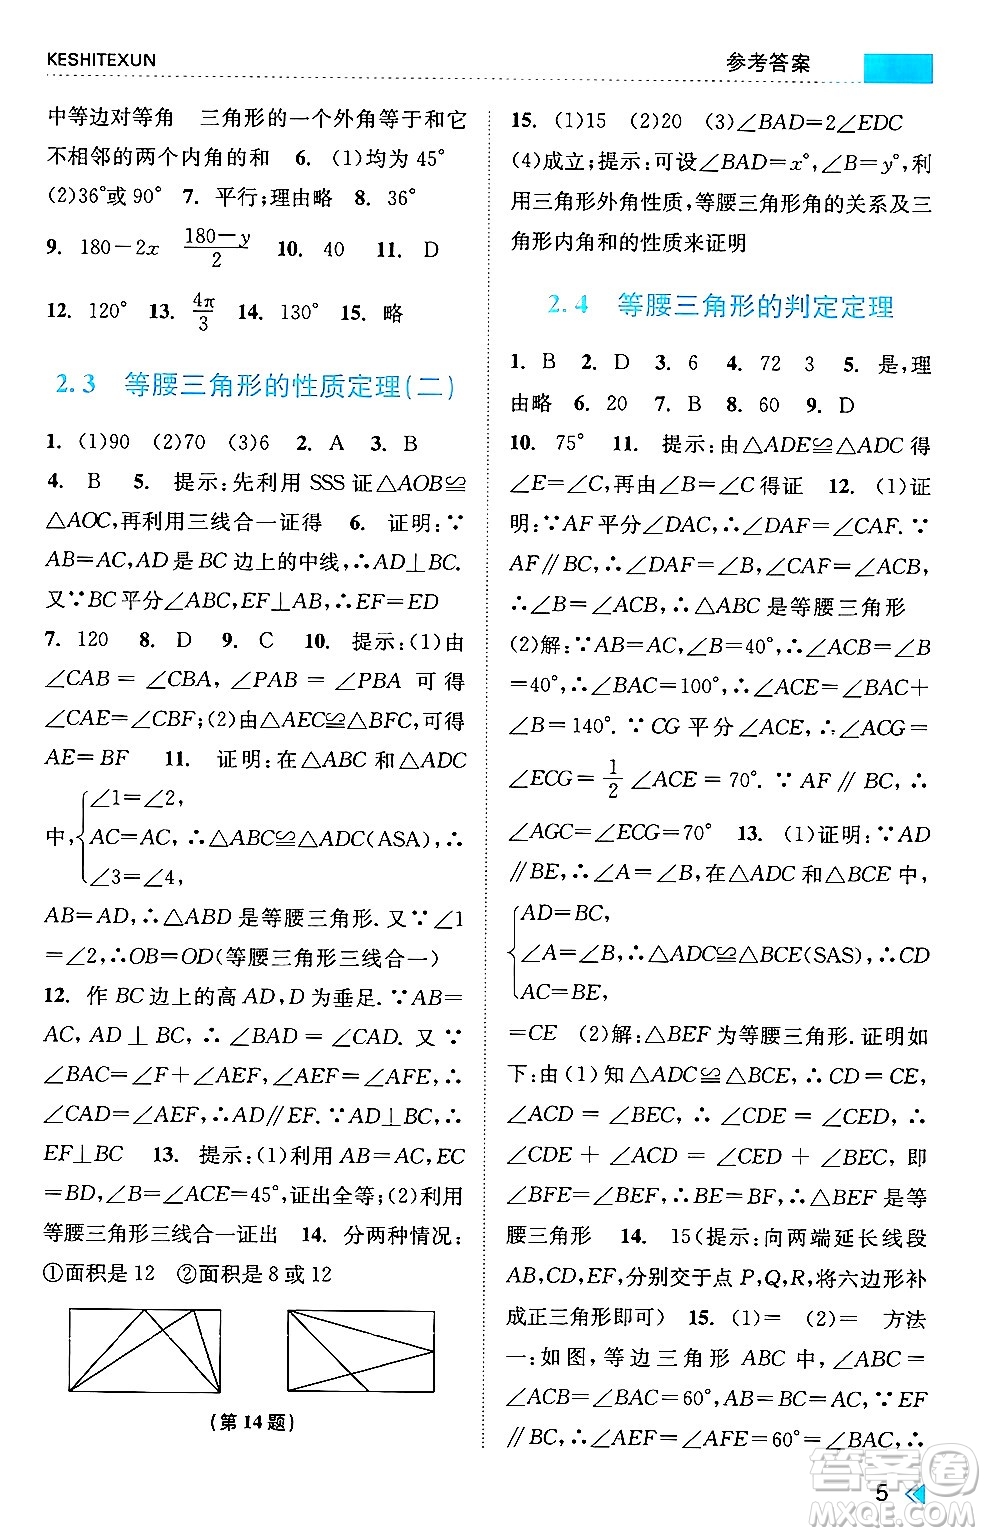 KESHITEXUN
参考答案
中等边对等角　三角形的一个外角等于和它
不相邻的两个内角的和　6. (1)均为 45°
(2)36°或 90°　7. 平行;理由略　8. 36°
9. 180－2x　(180－y)/2　10. 40　11. D
12. 120°　13. 4π/3　14. 130°　15. 略
2.3　等腰三角形的性质定理(二)
1. (1)90　(2)70　(3)6　2. A　3. B
4. B　5. 提示:先利用 SSS 证△AOB≌
△AOC,再利用三线合一证得　6. 证明:∵
AB=AC,AD是BC边上的中线,∴AD⊥BC.
又∵BC平分∠ABC,EF⊥AB,∴EF=ED
7. 120　8. D　9. C　10. 提示:(1)由
∠CAB = ∠CBA, ∠PAB = ∠PBA 可得
∠CAE=∠CBF;(2)由△AEC≌△BFC,可得
AE=BF　11. 证明:在△ABC 和△ADC
∠1=∠2,
中,{AC=AC, ∴△ABC≌△ADC(ASA),∴
∠3=∠4,
AB=AD,∴△ABD 是等腰三角形.又∵∠1
=∠2,∴OB=OD(等腰三角形三线合一)
12. 作 BC 边上的高 AD,D 为垂足.∵AB=
AC, AD⊥BC, ∴∠BAD = ∠CAD. 又 ∵
∠BAC=∠F+∠AEF,∠AEF=∠AFE,∴
∠CAD=∠AEF,∴AD∥EF.∵AD⊥BC,∴
EF⊥BC　13. 提示:(1)利用 AB=AC,EC
=BD,∠B=∠ACE=45°,证出全等;(2)利用
等腰三角形三线合一证出　14. 分两种情况:
①面积是 12　②面积是 8 或 12
(第 14 题)
15. (1)15　(2)20　(3)∠BAD=2∠EDC
(4)成立;提示:可设∠BAD=x°,∠B=y°,利
用三角形外角性质,等腰三角形角的关系及三
角形内角和的性质来证明
2.4　等腰三角形的判定定理
1. B　2. D　3. 6　4. 72　3　5. 是,理
由略　6. 20　7. B　8. 60　9. D
10. 75°　11. 提示:由△ADE≌△ADC 得
∠E=∠C,再由∠B=∠C 得证　12. (1)证
明:∵AF 平分∠DAC,∴∠DAF=∠CAF.∵
AF∥BC,∴∠DAF=∠B,∠CAF=∠ACB,
∴∠B=∠ACB,∴△ABC 是等腰三角形
(2)解:∵AB=AC,∠B=40°,∴∠ACB=∠B
=40°,∴∠BAC=100°,∴∠ACE=∠BAC+
∠B=140°.∵CG 平分∠ACE,∴∠ACG=
∠ECG = 1/2 ∠ACE = 70°. ∵ AF∥BC, ∴
∠AGC=∠ECG=70°　13. (1)证明:∵AD
∥BE,∴∠A=∠B,在△ADC 和△BCE 中,
AD=BC,
{∠A=∠B,∴△ADC≌△BCE(SAS),∴CD
AC=BE,
=CE　(2)解:△BEF 为等腰三角形.证明如
下:由(1)知△ADC≌△BCE,∴CD=CE,
∠ACD = ∠BEC, ∴∠CDE = ∠CED, ∴
∠CDE + ∠ACD = ∠CED + ∠BEC, 即
∠BFE=∠BEF,∴BE=BF,∴△BEF 是等
腰三角形　14. 15(提示:向两端延长线段
AB,CD,EF,分别交于点 P,Q,R,将六边形补
成正三角形即可)　15. (1)=　(2)=　方法
一:如图,等边三角形 ABC 中,∠ABC=
∠ACB=∠BAC=60°,AB=BC=AC,∵EF
∥BC,∴∠AEF=∠AFE=60°=∠BAC,∴
5
答案圈
MXQE.COM